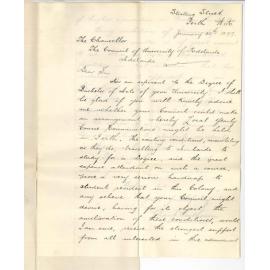 Stirling Street
Perth W.A.
January 20th 1897
The Chancellor
The Council of University of Adelaide
Adelaide
Dear Sir
As an aspirant to the Degree of
Bachelor of Arts of your University I shall
be glad if you will kindly advise
me whether your Council could make
an arrangement whereby Local Yearly
Course Examinations might be held
in Perth. The existing conditions, necessitating
as they do, travelling to Adelaide to
study for a Degree, and the great
expense attendant on such a course,
prove a very serious handicap to
students resident in this Colony and
any scheme that your Council might
devise, having for its object the
amelioration of these conditions, would
I am sure, receive the strongest support
from all interested in the